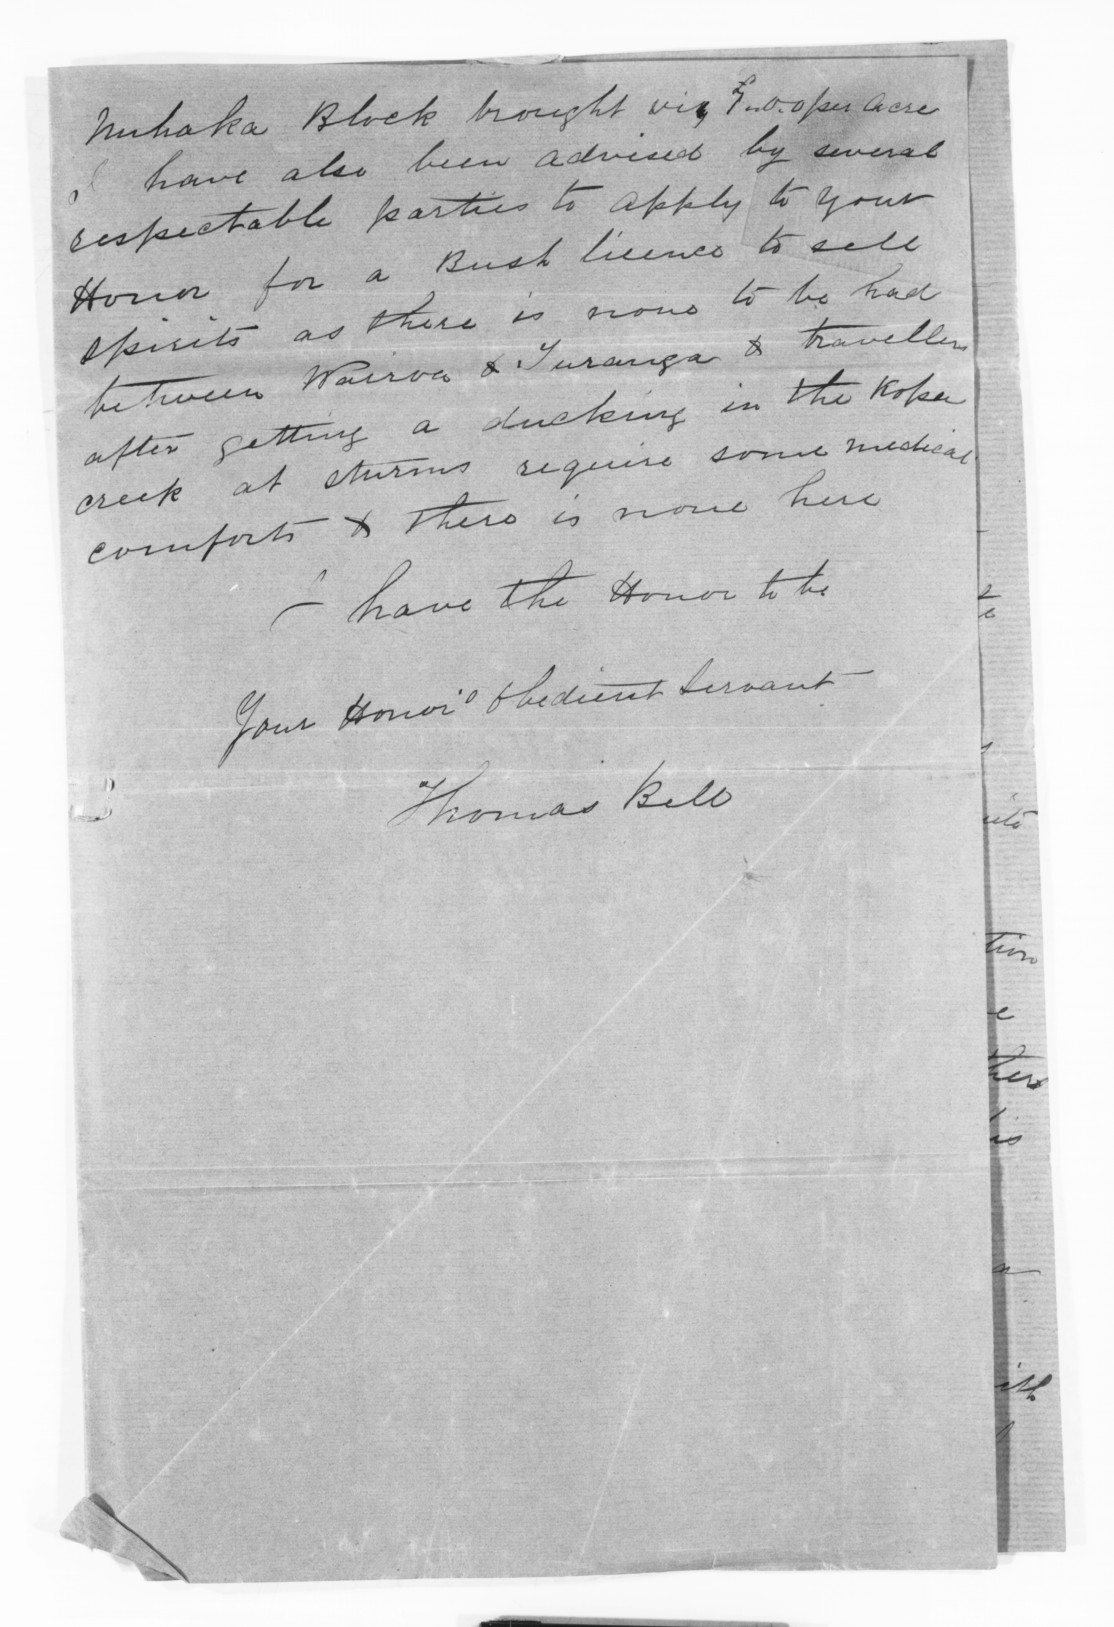 Nuhaka Block brought viz £1.0.0 per Acre
I have also been advised by several
respectable parties to apply to your
Honor for a Bush licence to sell
spirits as there is none to be had
between Wairoa & Turanga & travellers
after getting a ducking in the Kopu
creek at Sturms require some medical
comforts & there is none here
I have the Honor to be
Your Honor's Obedient Servant
Thomas Bell
tion
is
ith